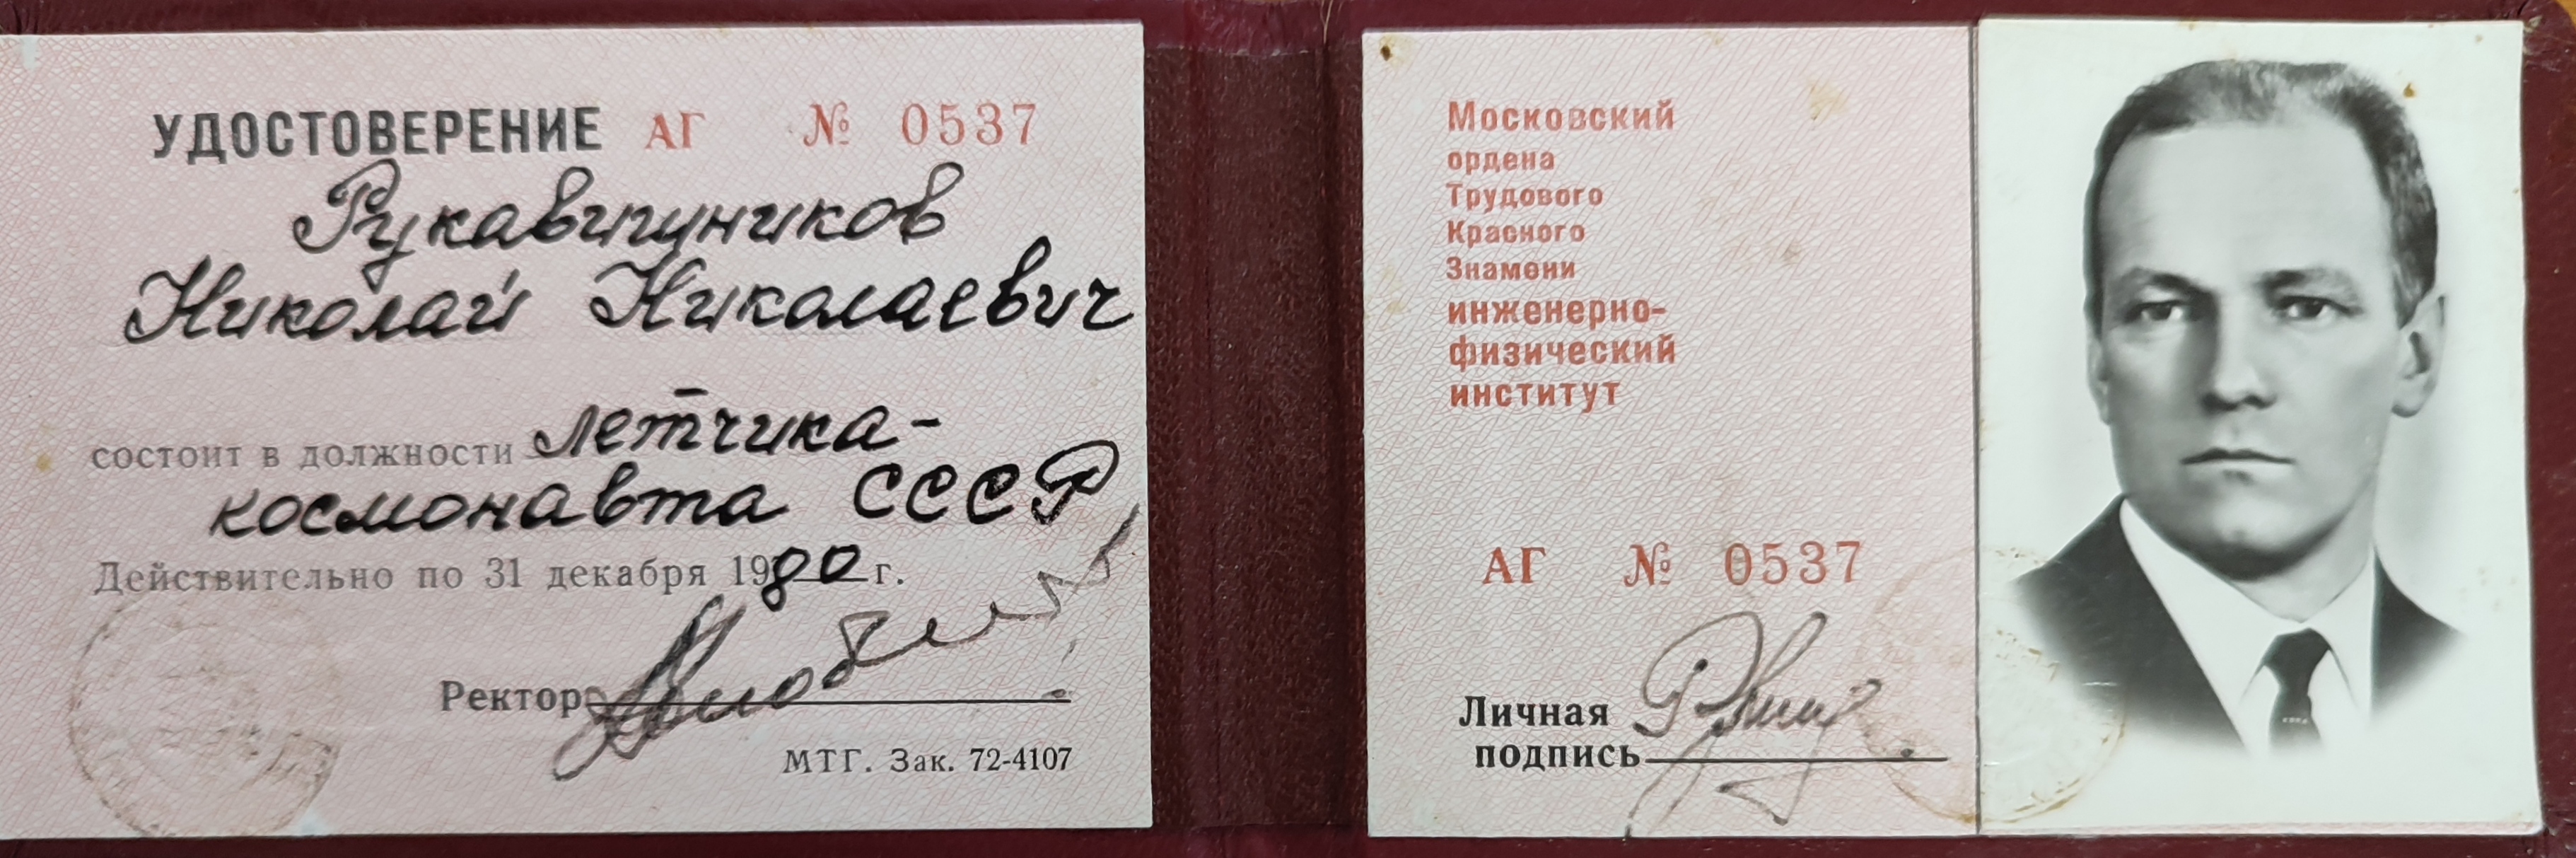 УДОСТОВЕРЕНИЕ АГ № 0537
Рукавишников
Николай Николаевич
состоит в должности летчика-
космонавта СССР
Действительно по 31 декабря 1980 г.
Ректор
МТГ. Зак. 72-4107
Московский
ордена
Трудового
Красного
Знамени
инженерно-
физический
институт
АГ № 0537
Личная
подпись